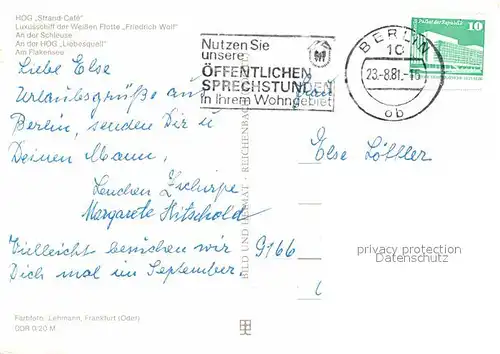 HOG „Strand-Café"
Luxusschiff der Weißen Flotte „Friedrich Wolf"
An der Schleuse
An der HOG „Liebesquell"
Am Flakensee
Liebe Else
Urlaubsgrüße aus
Berlin, senden Dir u
Deinen Mann,
Lenchen Zschirpe
Margarete Hitschold
Vielleicht besuchen wir
Dich mal im September.
9166
Farbfoto: Lehmann, Frankfurt (Oder)
DDR 0,20 M
BILD UND HEIMAT · REICHENBACH
Nutzen Sie
unsere
ÖFFENTLICHEN
SPRECHSTUNDEN
in Ihrem Wohngebiet
BERLIN
10
23.-8.81.-16
ob
10
Frau
Else Löffler
privacy protection
Datenschutz